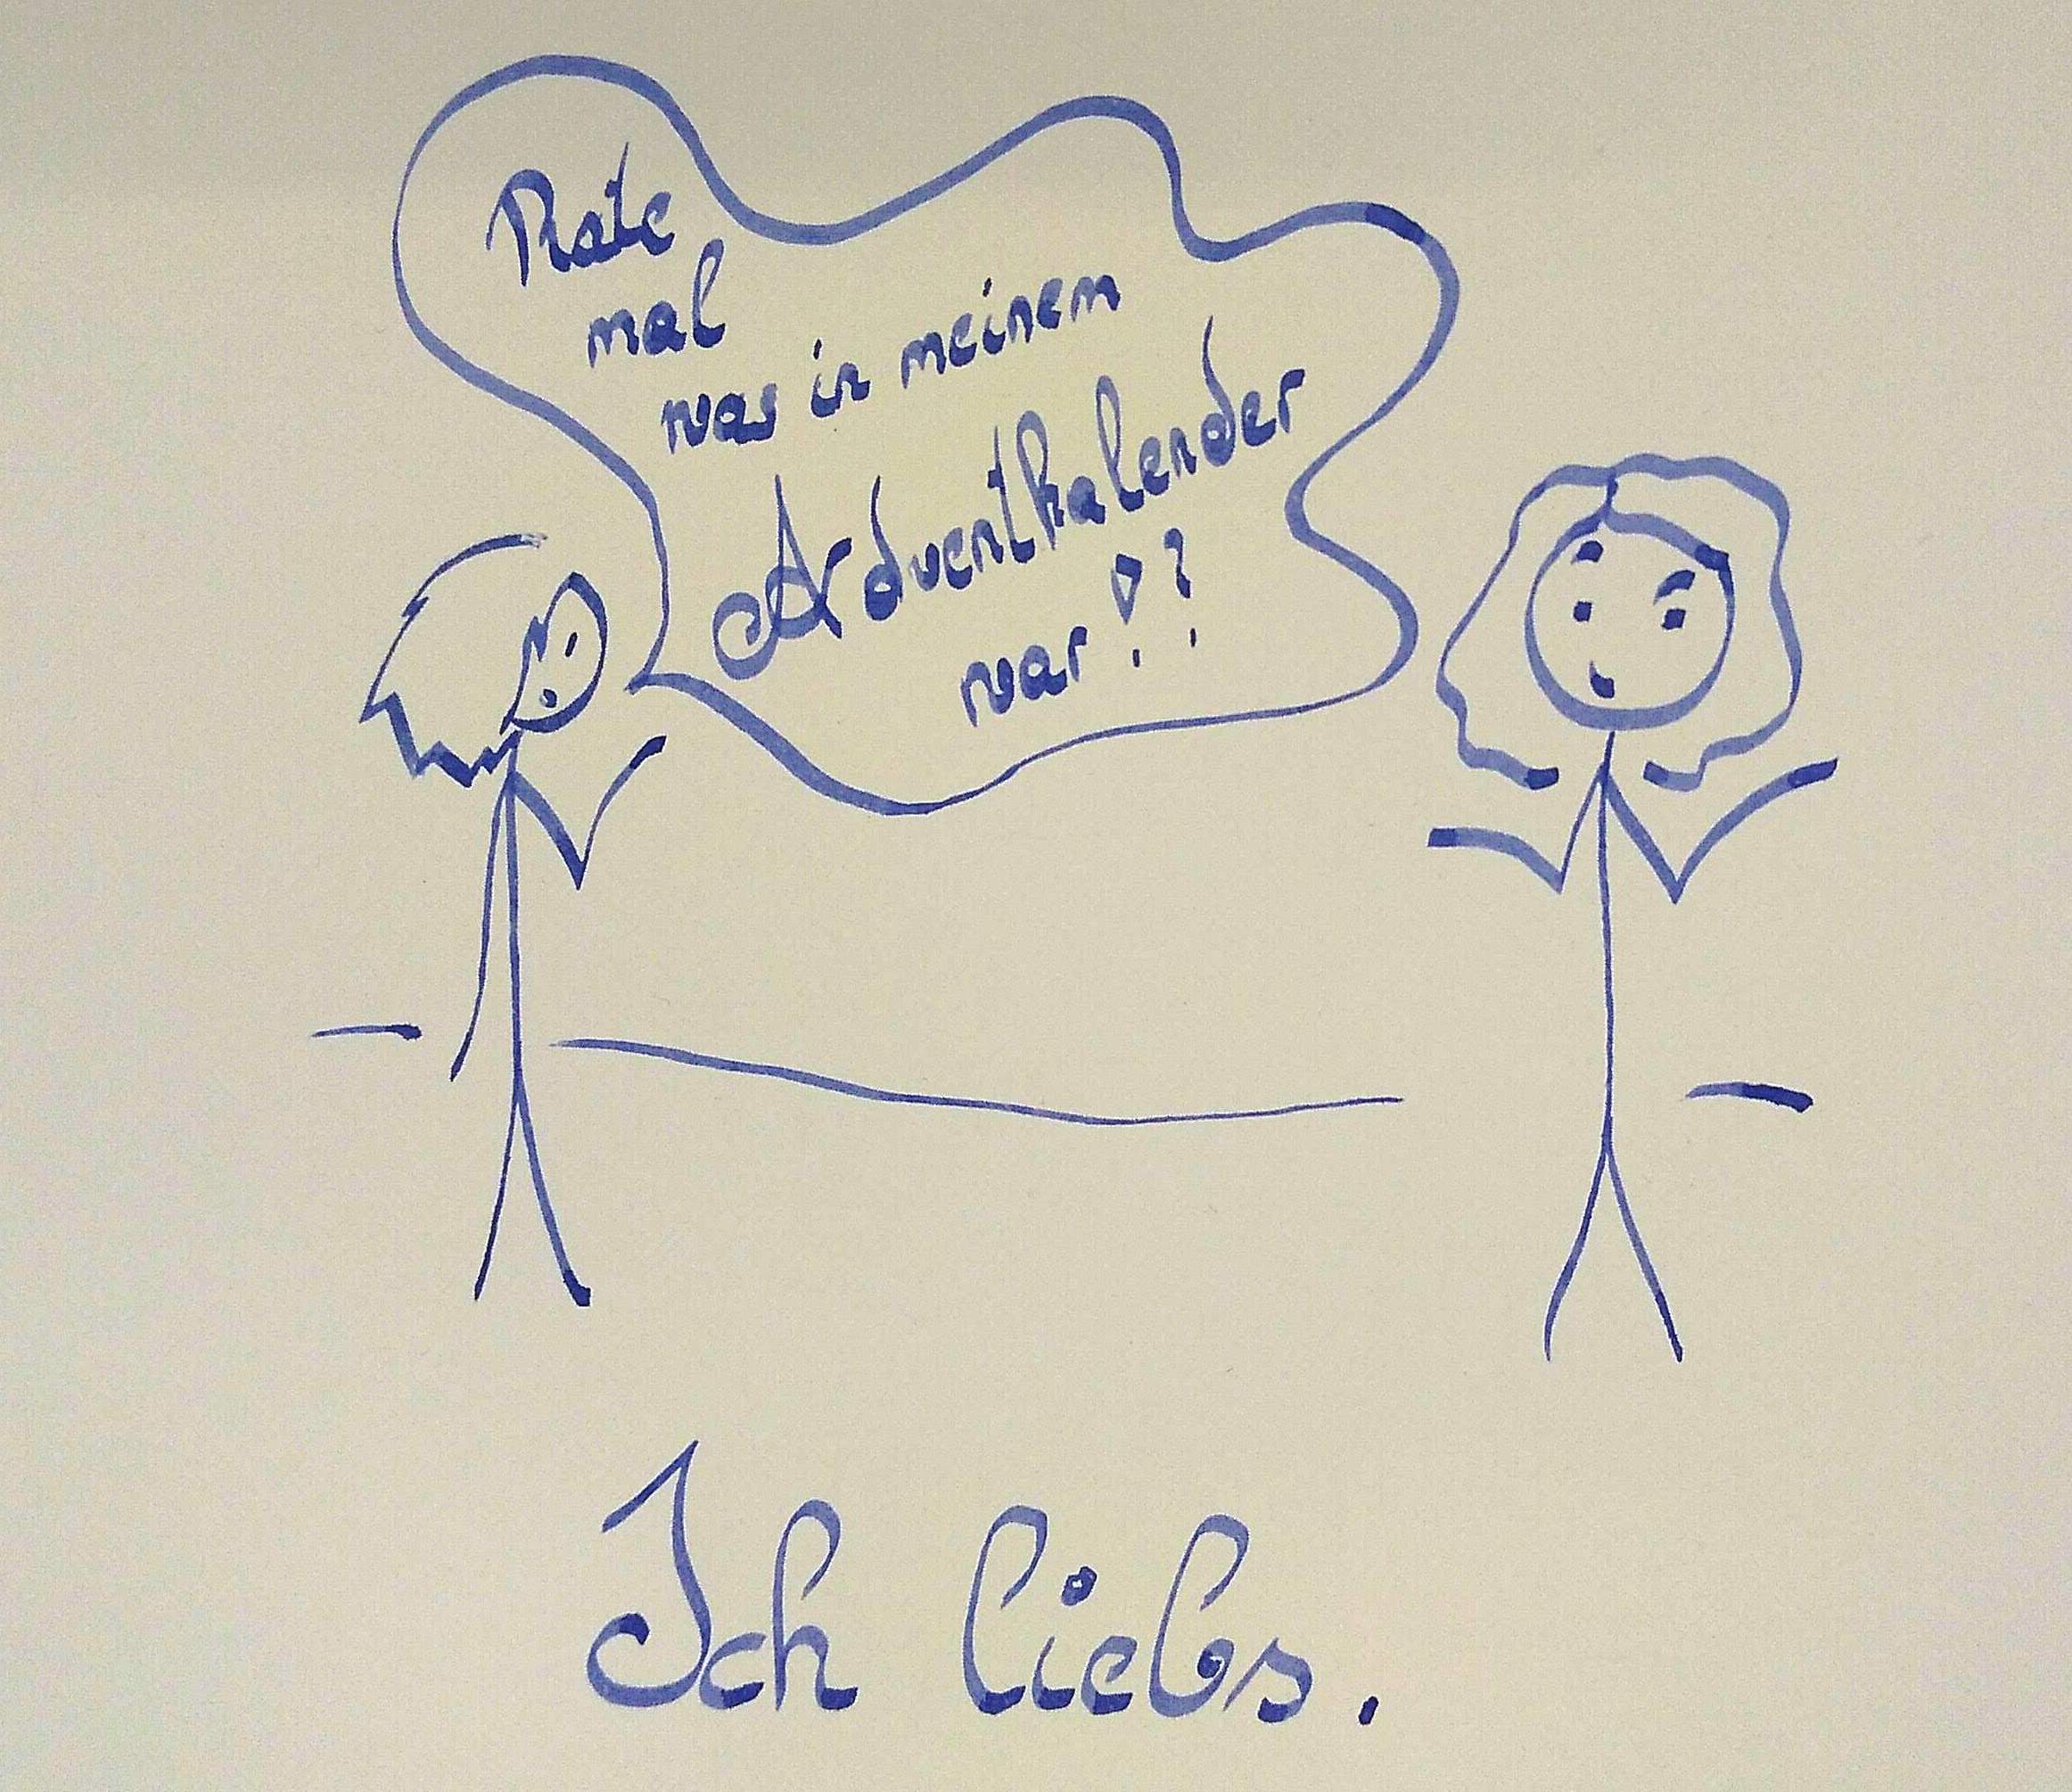 Rate
mal
was in meinem
Adventkalender
war!?
Ich liebs.